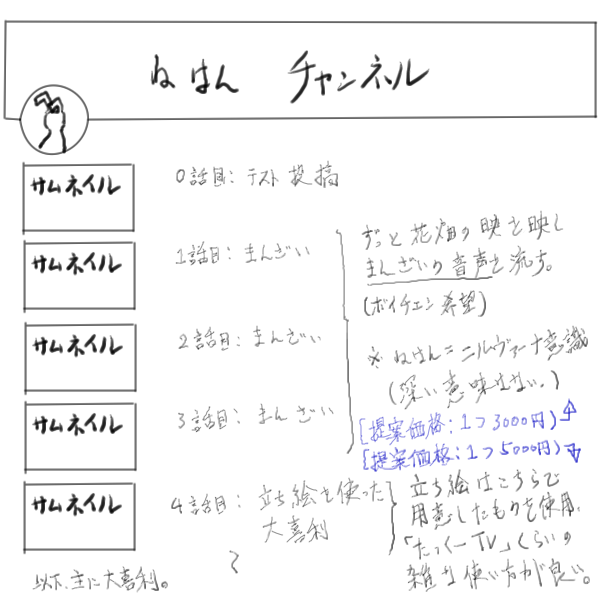 ねはん チャンネル
サムネイル
0話目: テスト投稿
サムネイル
1話目: まんざい
サムネイル
2話目: まんざい
サムネイル
3話目: まんざい
ずっと花畑の映を映し
まんざいの音声を流す。
(ボイチェン希望)
※ ねはん=ニルヴァーナ意識
(深い意味はない。)
[提案価格:1つ3000円)
[提案価格:1つ5000円)
サムネイル
4話目: 立ち絵を使った
大喜利
立ち絵はこちらで
用意したものを使用、
「たっくーTV」くらいの
雑な使い方が良い。
以下、主に大喜利。